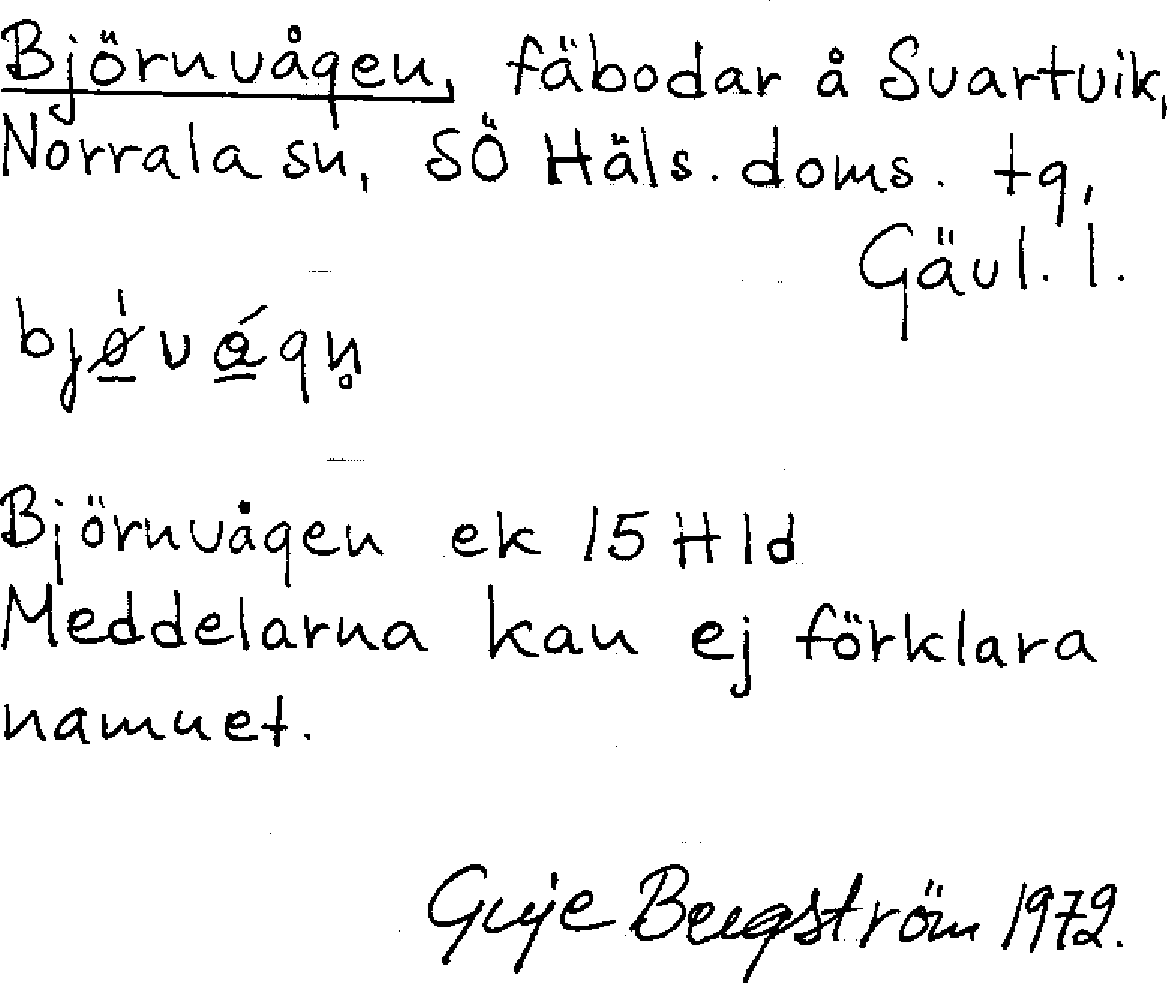 Björnvågen, fäbodar å Svartvik,
Norrala sn, SÖ Häls. doms. tg,
Gävl. l.
Björnvågen ek 15 Hld
Meddelarna kan ej förklara
namnet.
Bergström 1972.